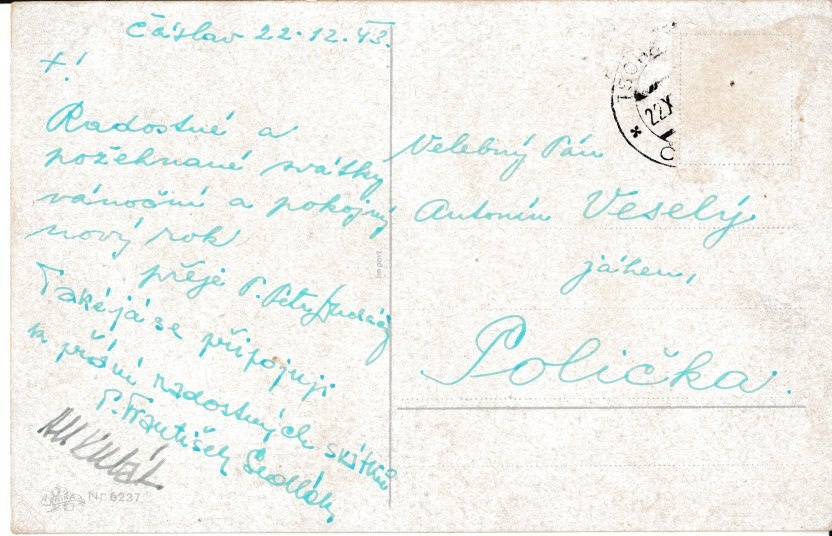 Čáslav 22.12.43.
+!
Radostné a
požehnané svátky
vánoční a pokojný
nový rok
přeje P. Petr
Také já se připojuji
k přání radostných svátků
P. František Sedlák
Nr 6237
Im port
Velebný Pán
Antonín Veselý
jáhen,
Polička.
22.X